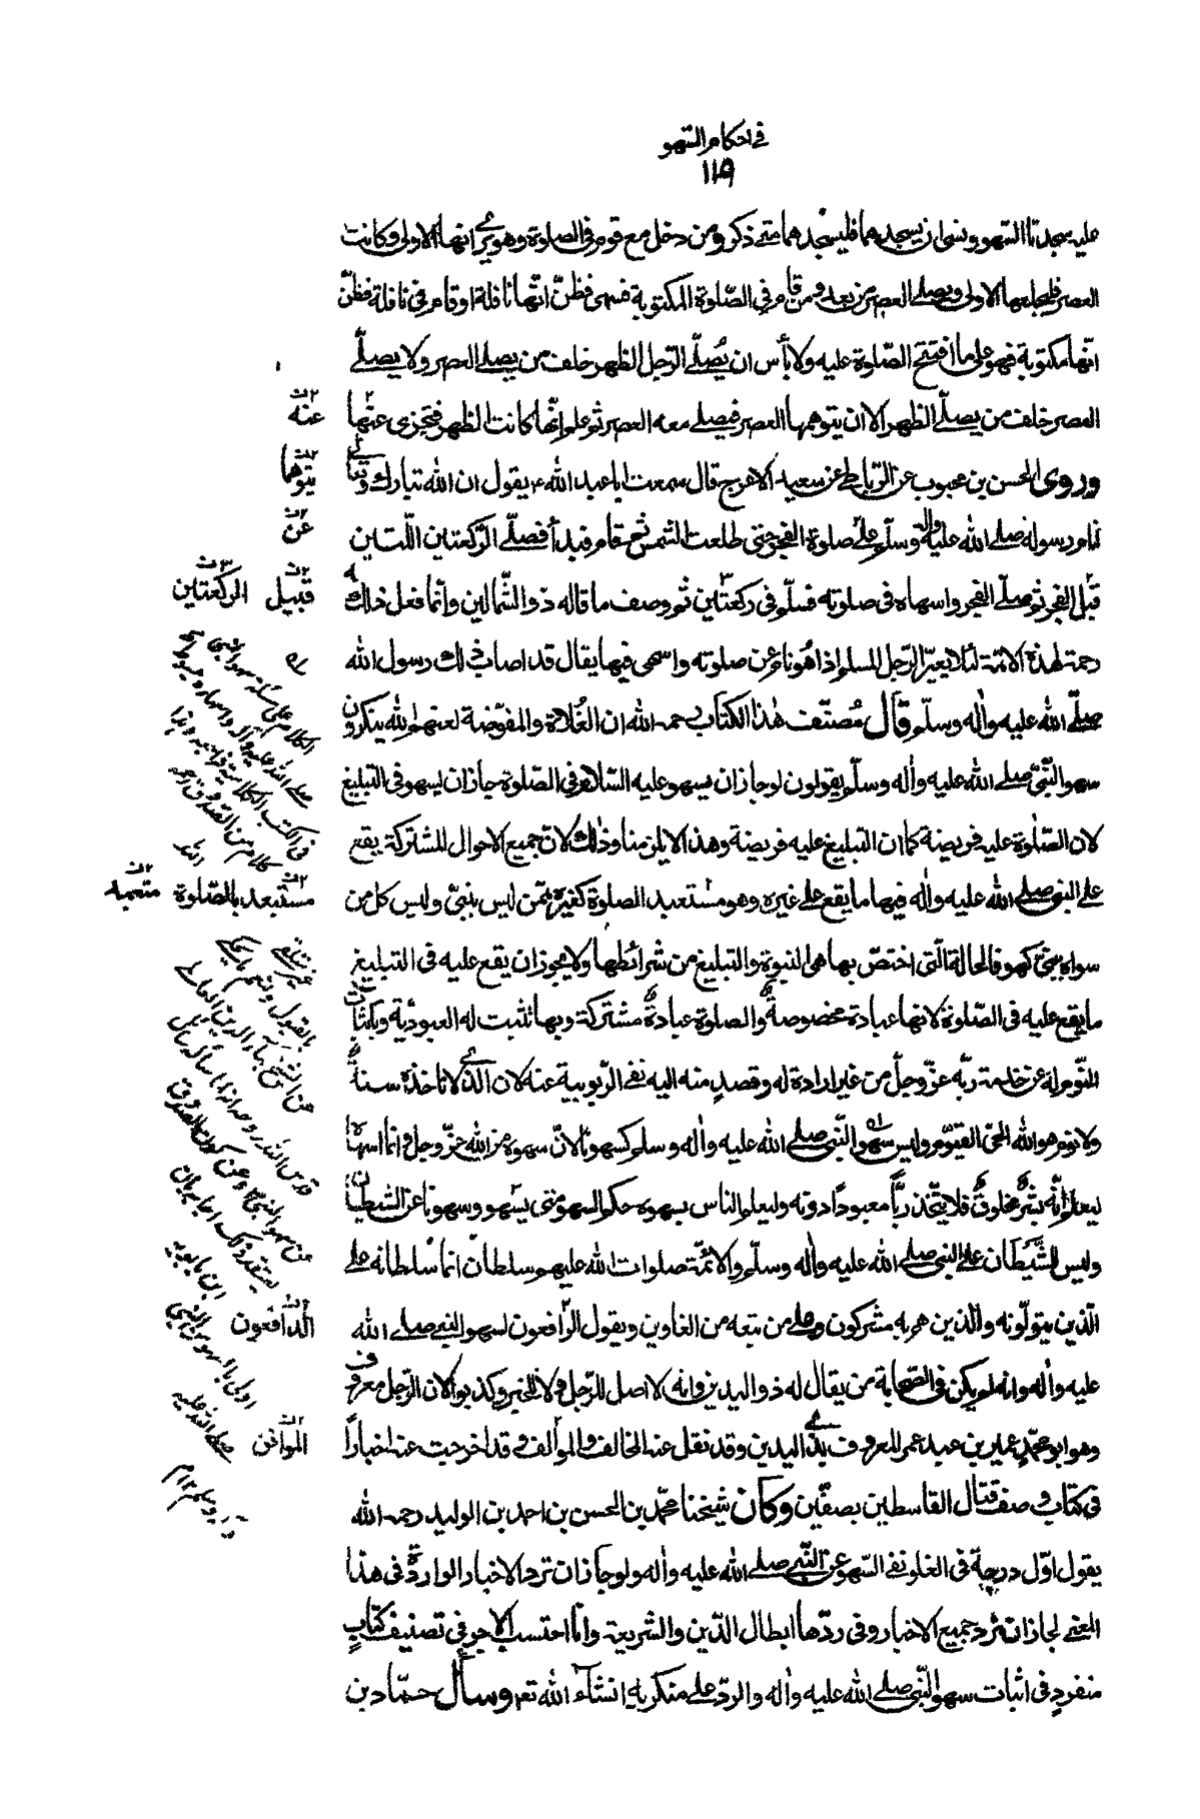 في احكام السهو
١١٩
عليه سجدتا السّهو ونسى ان يسجدهما فليسجدهما متى ذكر ومن دخل مع قوم في الصلوة وهو يرى انها الاولى وكانت
العصر فليجعلها الاولى ويصلى العصر من بعد ومن قام في الصّلوة المكتوبة فسهى فظنّ انّها نافلة او قام في نافلة فظنّ
انّها مكتوبة فهو على ما افتتح الصّلوة عليه ولا بأس ان يُصلّى الرّجل الظهر خلف من يصلى العصر ولا يصلّى
العصر خلف من يصلّى الظهر الا ان يتوهمها العصر فيصلى معه العصر ثم علم انّها كانت الظهر فتجزى عنها
عنه
وروى الحسن بن محبوب عن الرّباطى عن سعيد الاعرج قال سمعت ابا عبد الله ع يقول ان الله تبارك وتعالى
يتوّهما
نام رسوله صلى الله عليه واله وسلّم على صلوة الفجر حتى طلعت الشمس ثم قام فبدأ فصلّى الرّكعتين اللّتين
عن
قبل الفجر ثم صلّى الفجر واسهاه فى صلوته فسلّم فى ركعتين ثم وصف ما قاله ذو الشّمالين وانّما فعل ذلك به
قبيل الركعتين
رحمة لهذه الامّة لئلا يعيّر الرّجل المسلم اذا هو نام عن صلوته واسهى فيها يقال قد اصاب ذلك رسول الله
صلّى الله عليه واله وسلّم قال مُصنّف هٰذا الكتاب رحمه الله ان الغُلاة والمفوّضة لعنهم الله ينكرون
سهو النّبىّ صلى الله عليه واله وسلّم يقولون لو جاز ان يسهو عليه السّلام فى الصّلوة جاز ان يسهو فى التبليغ
لان الصّلوة عليه فريضة كما ان التبليغ عليه فريضة وهذا لا يلزمنا وذلك لان جميع الاحوال المشتركة يقع
على النبى صلى الله عليه واله فيها ما يقع على غيره وهو مستعبد الصلوة كغيره ممّن ليس بنبىّ وليس كل من
مستبعد بالصّلوة متعبد
سواه بنبىّ كهو فالحالة الّتى اختصّ بها هى النبوة والتبليغ من شرائطها ولا يجوز ان يقع عليه فى التبليغ
ما يقع عليه فى الصّلوة لانها عبادة مخصوصةٌ والصلوة عبادةٌ مشتركة وبها تثبت له العبوديّة وباثبات
النّوم له عن خدمة ربّه عزّ وجلّ من غير ارادة له وقصدٍ منه اليه نفى الرّبوبية عنه لان الّذى لا تاخذه سنةٌ
ولا نوم هو الله الحىّ القيّوم وليس سهو النّبى صلى الله عليه واله وسلم كسهونا لانّ سهوه من الله عزّ وجل وانما اسهاه
ليعلم انّه بشرٌ مخلوقٌ فلا يتّخذ ربًّا معبودًا دونه وليعلم الناس بسهوه حكم السهو متى يسهو وسهونا عن الشيطان
وليس للشَّيْطان على النبى صلى الله عليه واله وسلّم والائمّة صلوات الله عليهم سلطان انما سُلطانه على
الّذين يتولّونه والّذين هم به مشركون وعلى من تبعه من الغاوين ويقول الرّافعون لسهو النبى صلى الله
الدافعون
عليه واله وانه لم يكن فى الصّحابة من يقال له ذو اليدين وانه لا اصل للرّجل ولا للخبر وكذبوا لان الرّجل معروف
وهو ابو محمّدٍ عمير بن عبد عمر المعروف بذى اليدين وقد نقل عنه المخالف والمؤالف وقد اخرجت عنه اخبارًا
فى كتاب وصف قتال القاسطين بصفّين وكان شيخنا محمّد بن الحسن بن احمد بن الوليد رحمه الله
يقول اوّل درجة فى الغلو نفى السّهو عن النّبى صلى الله عليه واله ولو جاز ان ترد الاخبار الواردة فى هذا
المعنى لجاز ان تردّ جميع الاخبار وفى ردّها ابطال الدّين والشريعة وانا احتسب الاجر فى تصنيف كتابٍ
منفردٍ فى اثبات سهو النّبى صلى الله عليه واله والردّ على منكريه انشاء الله تعم وسأل حمّاد بن